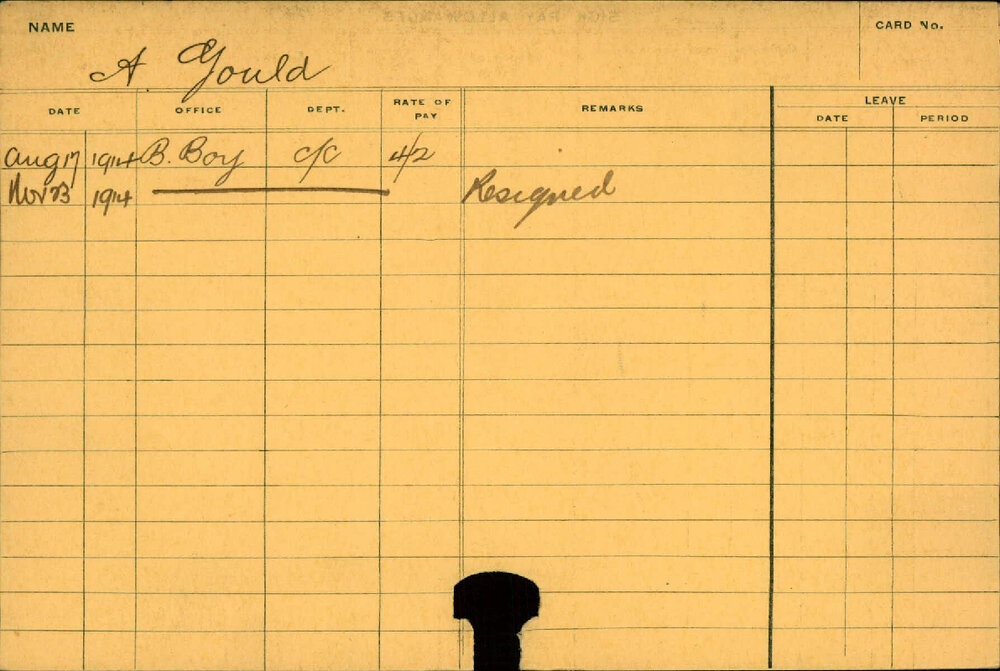 NAME
CARD No.
A. Gould
DATE OFFICE DEPT. RATE OF PAY REMARKS LEAVE
DATE PERIOD
Aug 17 1914 B. Boy C/C 4/2
Nov 23 1914 Resigned